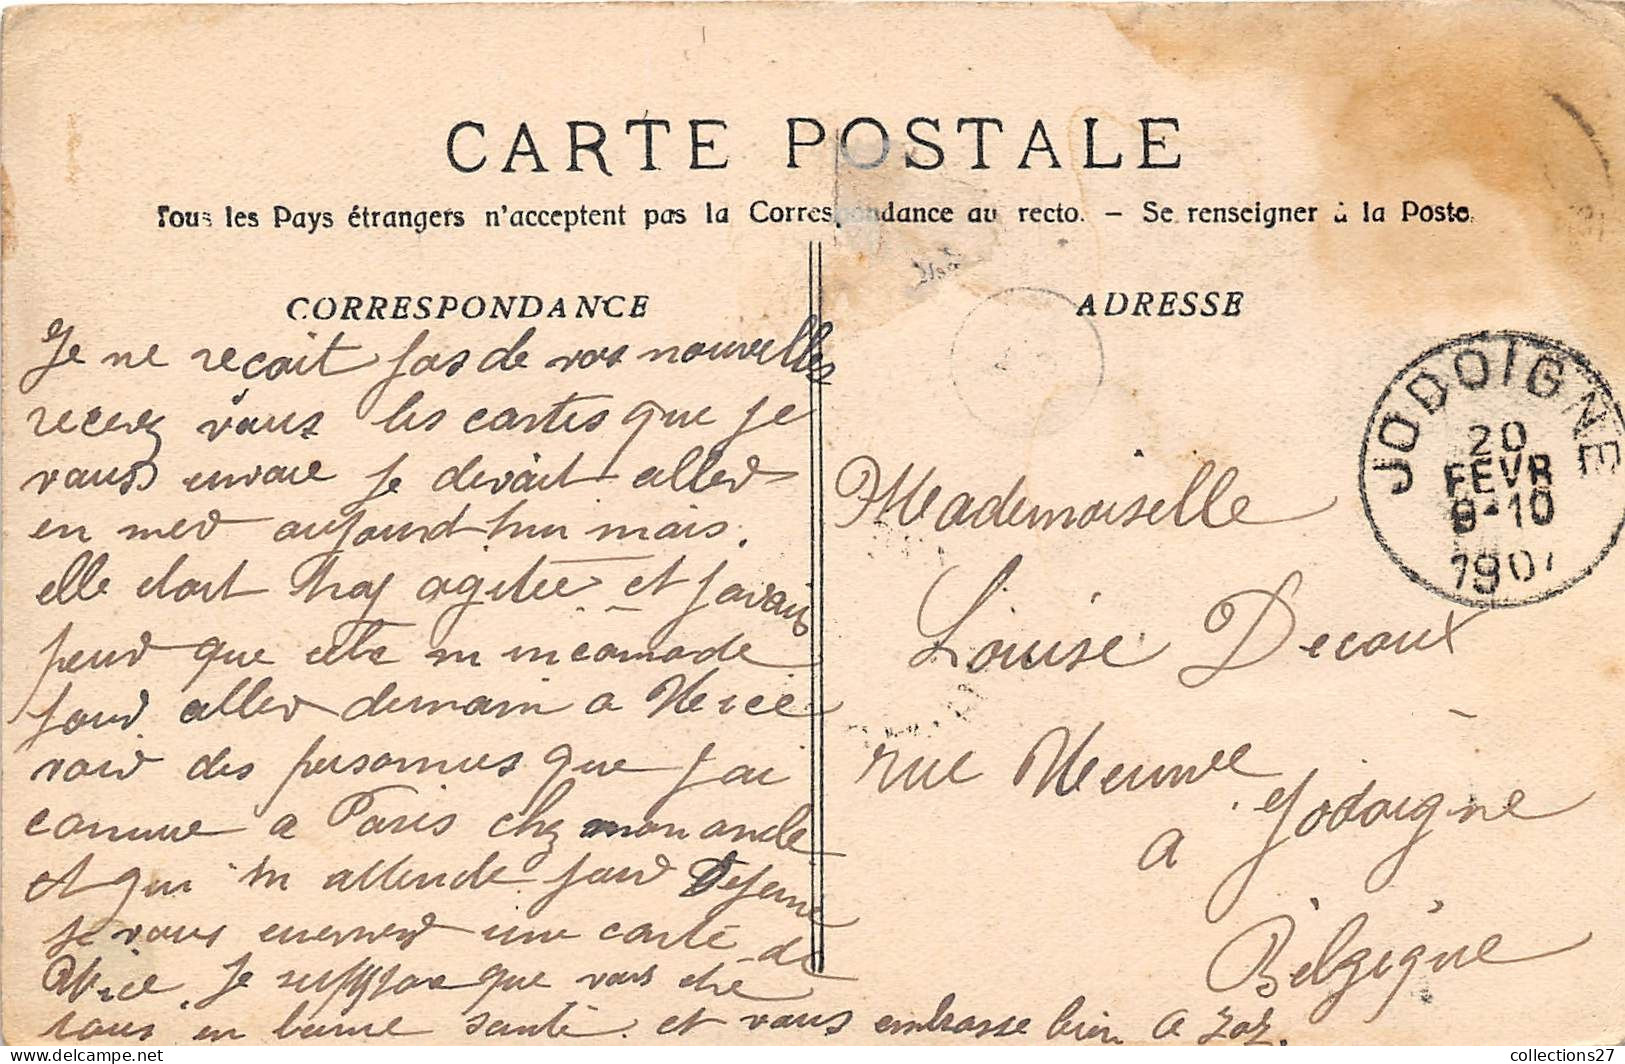 CARTE POSTALE
Tous les Pays étrangers n'acceptent pas la Correspondance au recto. – Se renseigner à la Poste
CORRESPONDANCE
ADRESSE
Je ne reçoit pas de vos nouvelles
recevez vous les cartes que je
vous envoie je devait aller
en mer aujourd hui mais.
elle etait trop agitée et j'avais
peur que cela m incomode
pour aller demain a Nice
voir des personnes que j'ai
connue a Paris chez mon oncle
et qui m attende pour dejeuné
je vous enverer une carte de
Nice. Je suppose que vous ete
tous en bonne santé. et vous embrasse bien
JODOIGNE
20
FEVR
9-10
1907
Mademoiselle
Louise Decoux
rue Neuve
a Jodoigne
Belgique
collections27